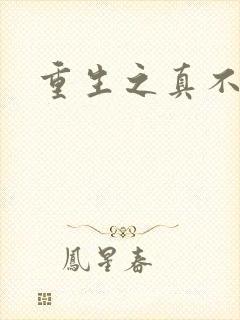 重生之真不
鳳星春